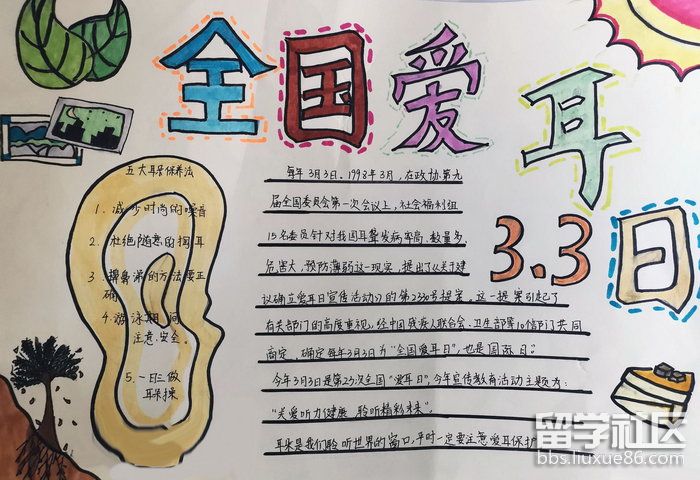 全国爱耳日
3.3
五大耳骨保养法
1、减少时尚的噪音
2、杜绝随意的掏耳
3、擤鼻涕的方法要正确
4、游泳期间注意安全。
5、一日三做耳操
每年3月3日。1998年3月，在政协第九
届全国委员会第一次会议上，社会福利组
15名委员针对我国耳聋发病率高、数量多、
危害大，预防薄弱这一现实，提出了《关于建
议确立爱耳日宣传活动》的第2330号提案。这一提案引起了
有关部门的高度重视，经中国残疾人联合会、卫生部等10个部门共同
商定，确定每年3月3日为“全国爱耳日”，也是国际日。
今年3月3日是第23次全国“爱耳日”，今年宣传教育活动主题为：
“关爱听力健康 聆听精彩未来”。
耳朵是我们聆听世界的窗口，平时一定要注意爱耳保护
留学社区
bbs.liuxue86.com